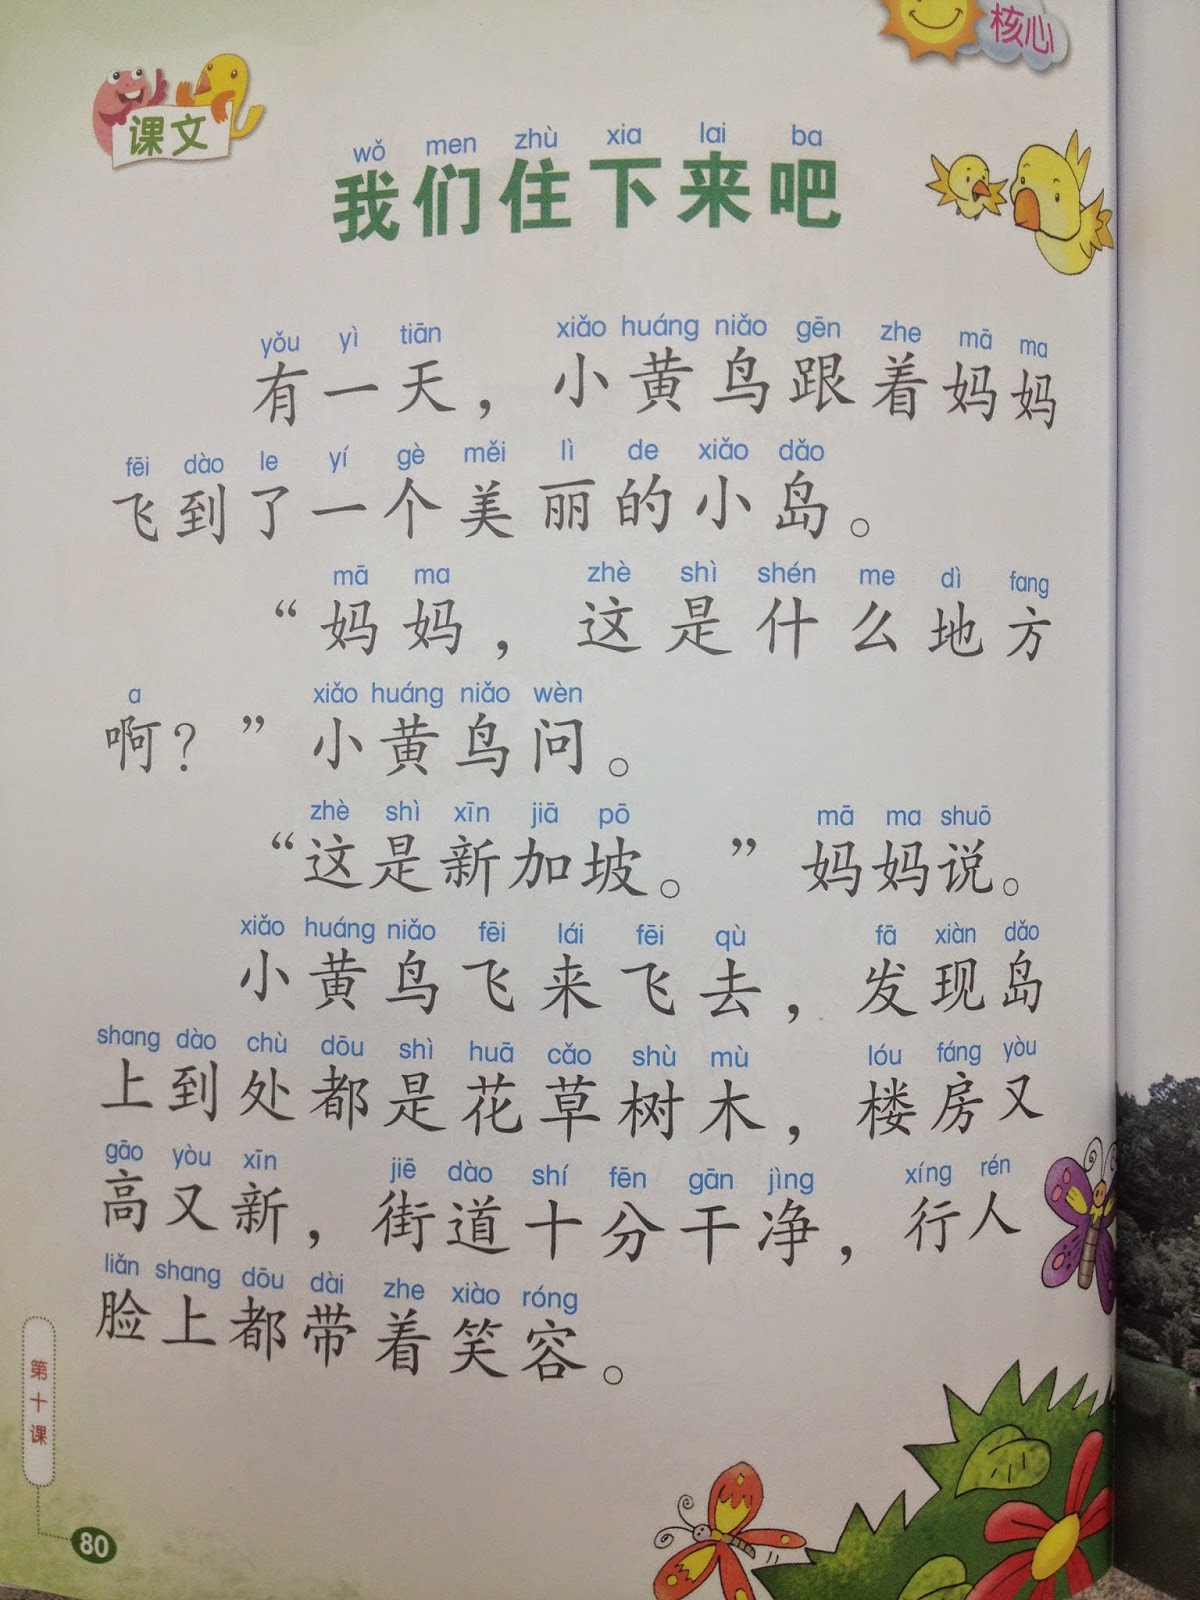 核心
课文
wǒ men zhù xia lai ba
我们住下来吧
yǒu yì tiān xiǎo huáng niǎo gēn zhe mā ma
有一天，小黄鸟跟着妈妈
fēi dào le yí gè měi lì de xiǎo dǎo
飞到了一个美丽的小岛。
mā ma zhè shì shén me dì fang
“妈妈，这是什么地方
a xiǎo huáng niǎo wèn
啊？”小黄鸟问。
zhè shì xīn jiā pō mā ma shuō
“这是新加坡。”妈妈说。
xiǎo huáng niǎo fēi lái fēi qù fā xiàn dǎo
小黄鸟飞来飞去，发现岛
shang dào chù dōu shì huā cǎo shù mù lóu fáng yòu
上到处都是花草树木，楼房又
gāo yòu xīn jiē dào shí fēn gān jìng xíng rén
高又新，街道十分干净，行人
liǎn shang dōu dài zhe xiào róng
脸上都带着笑容。
第十课
80